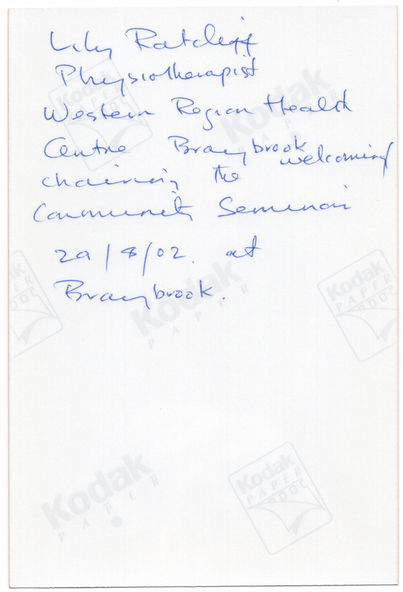 Lily Ratcliff
Physiotherapist
Western Region Health
Centre Braybrook
chairing the welcoming
Community Seminar
29/8/02. at
Braybrook.
Kodak
PAPER
Kodak
PAPER
Kodak
PAPER
Kodak
PAPER
Kodak
PAPER
Kodak
PAPER